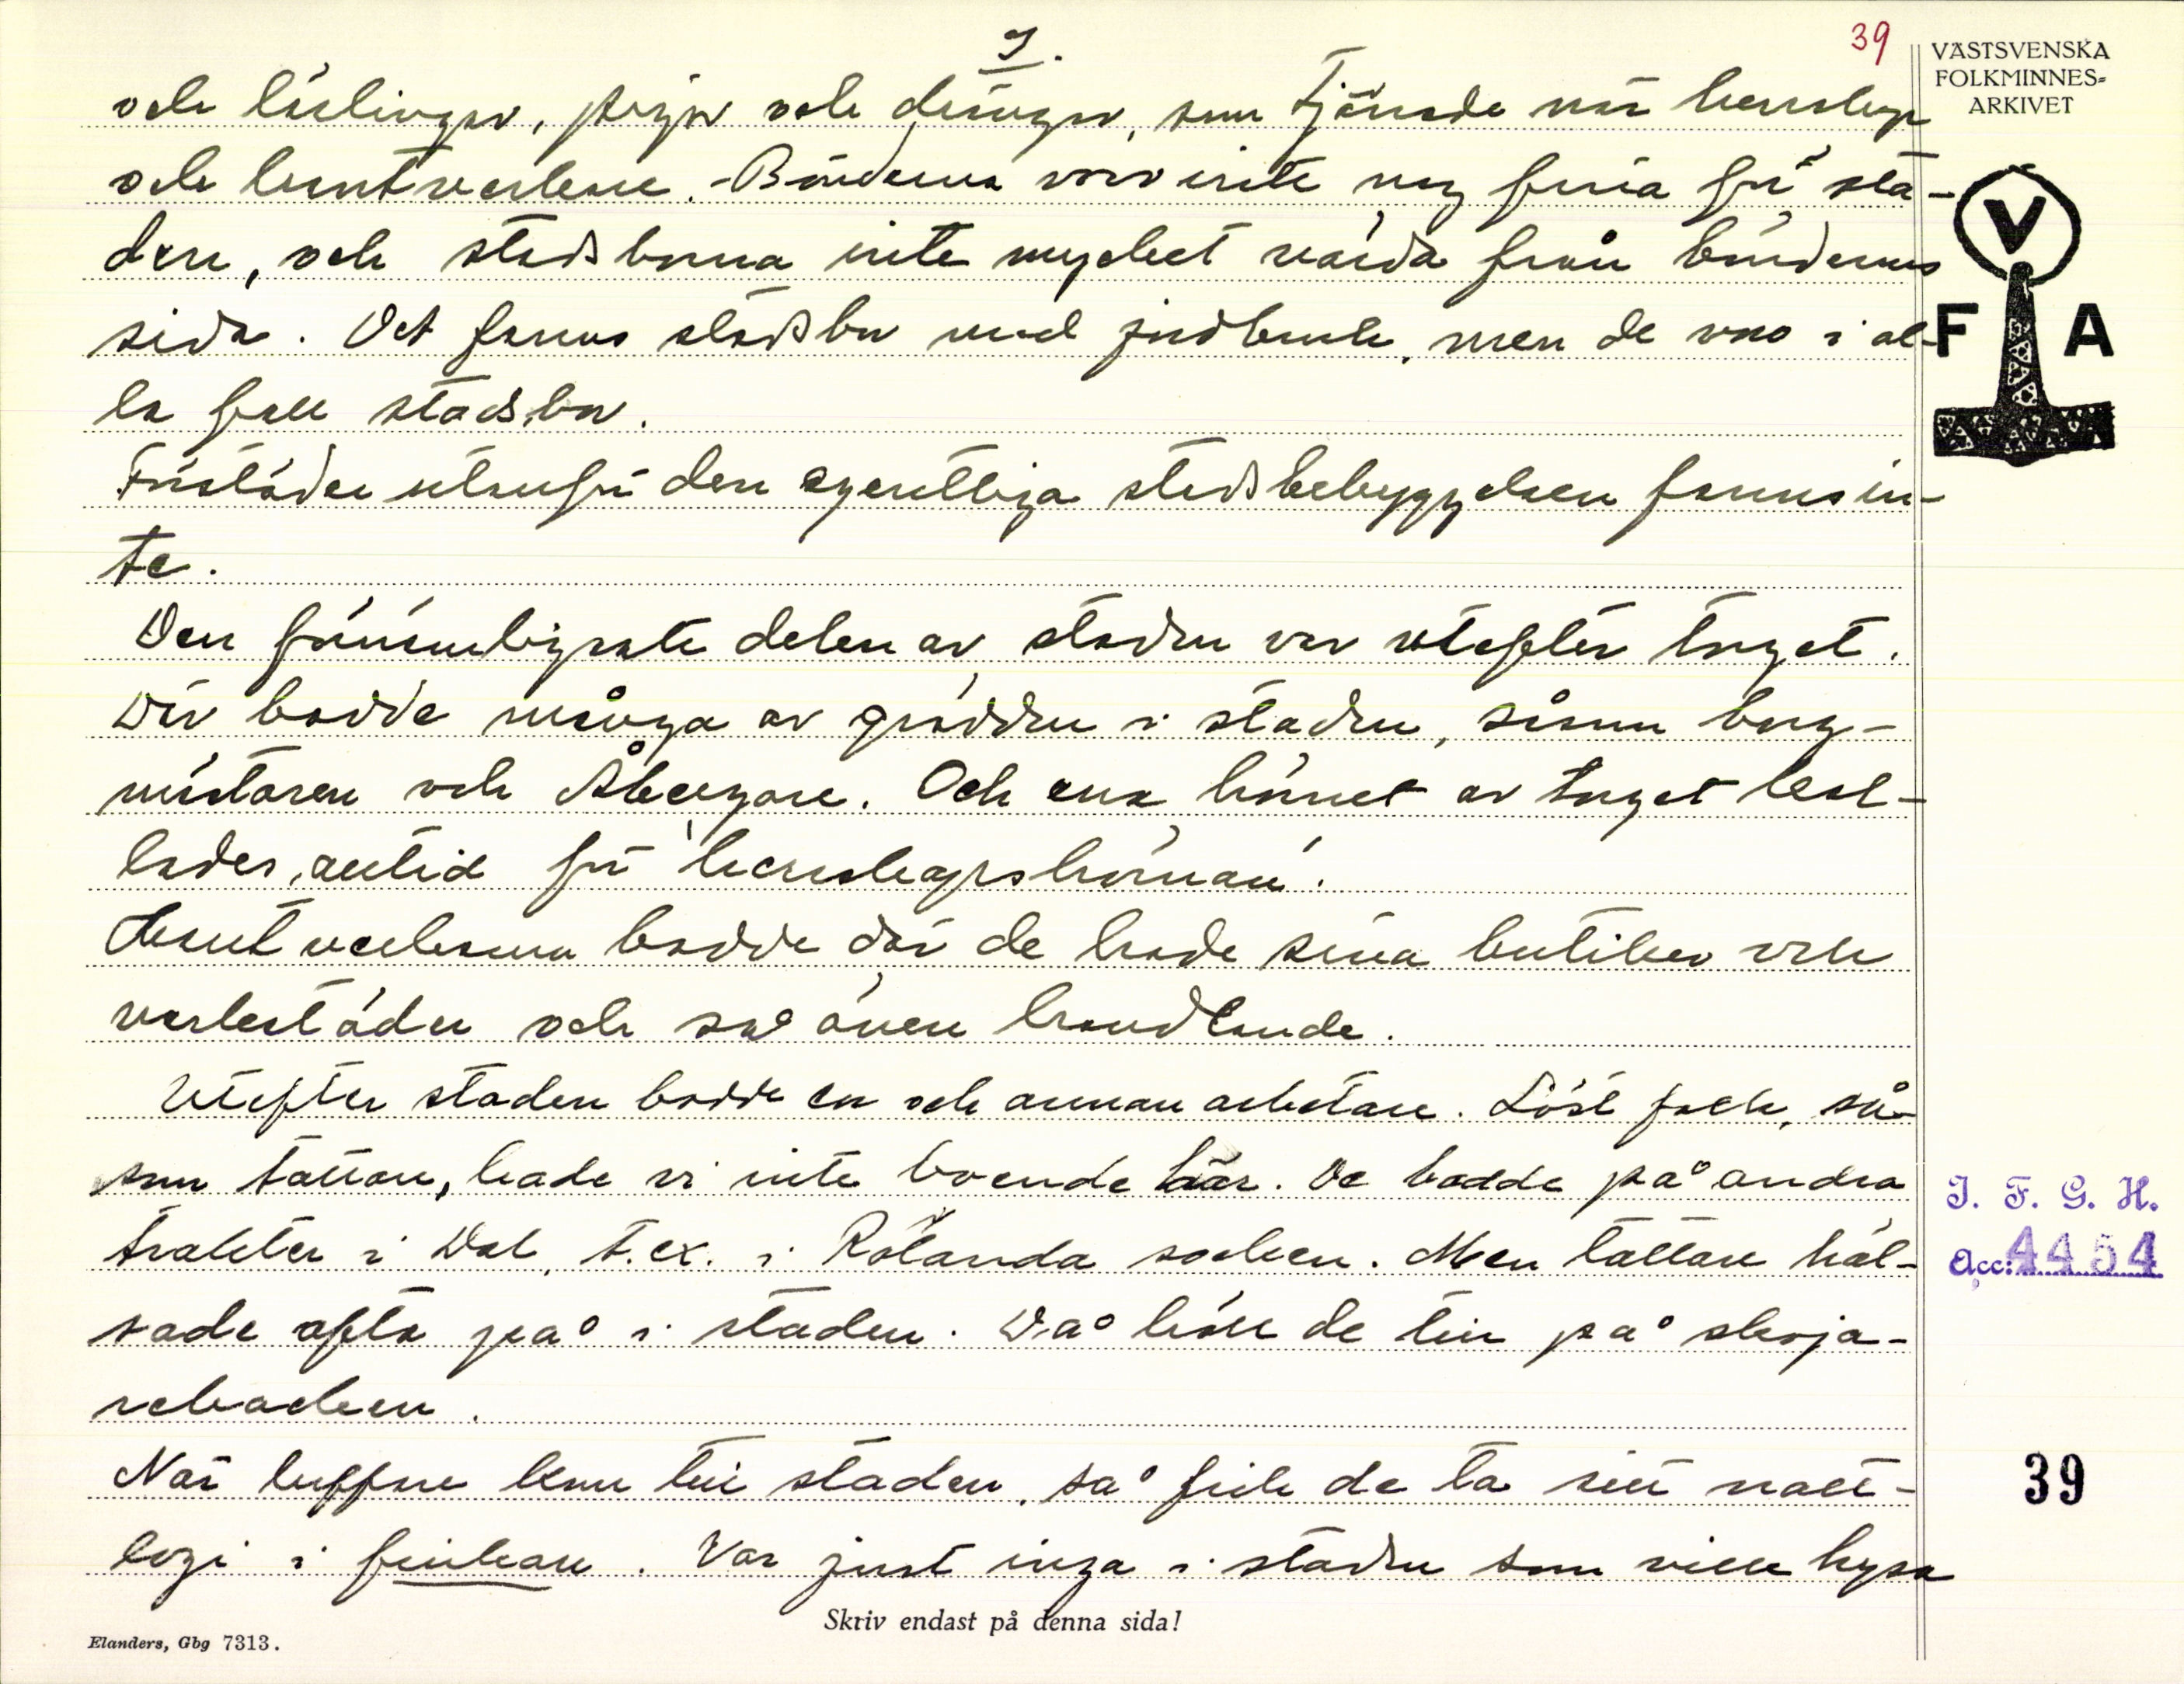 9.
39
VÄSTSVENSKA
FOLKMINNES=
ARKIVET
och lärlingar, pigor och drängar, som tjänade när herrskap
och hantverkare. - Bönderna voro inte nog fina för stä-
dern, och stadsborna inte mycket värda från böndernas
sida. Det fanns stadsbor med jordbruk, men de voro i al-
la fall stadsbor.
Förstäder utanför den egentliga stadsbebyggelsen fanns in-
te.
Den förnämligaste delen av staden var utefter torget.
Där bodde många av grädden i staden, såsom borg-
mästaren och Åbergare. Och ena hörnet av torget kal-
lades alltid för herrskapshörnan.
Hantverkarna bodde där de hade sina butiker och
verkstäder och så även handlande.
Utefter staden bodde en och annan arbetare. Löst folk, så-
som tattare, hade vi inte boende här. De bodde på andra
trakter i Dal, t.ex. i Rölanda socken. Men tattare häl-
sade ofta på i staden. Då höll de till på skoja-
rebacken.
När luffare kom till staden, så fick de ta sitt natt-
logi i finkan. Var just inga i staden som ville hysa
V
F A
I. F. G. H.
Acc: 4454
39
Skriv endast på denna sida!
Elanders, Gbg 7313.